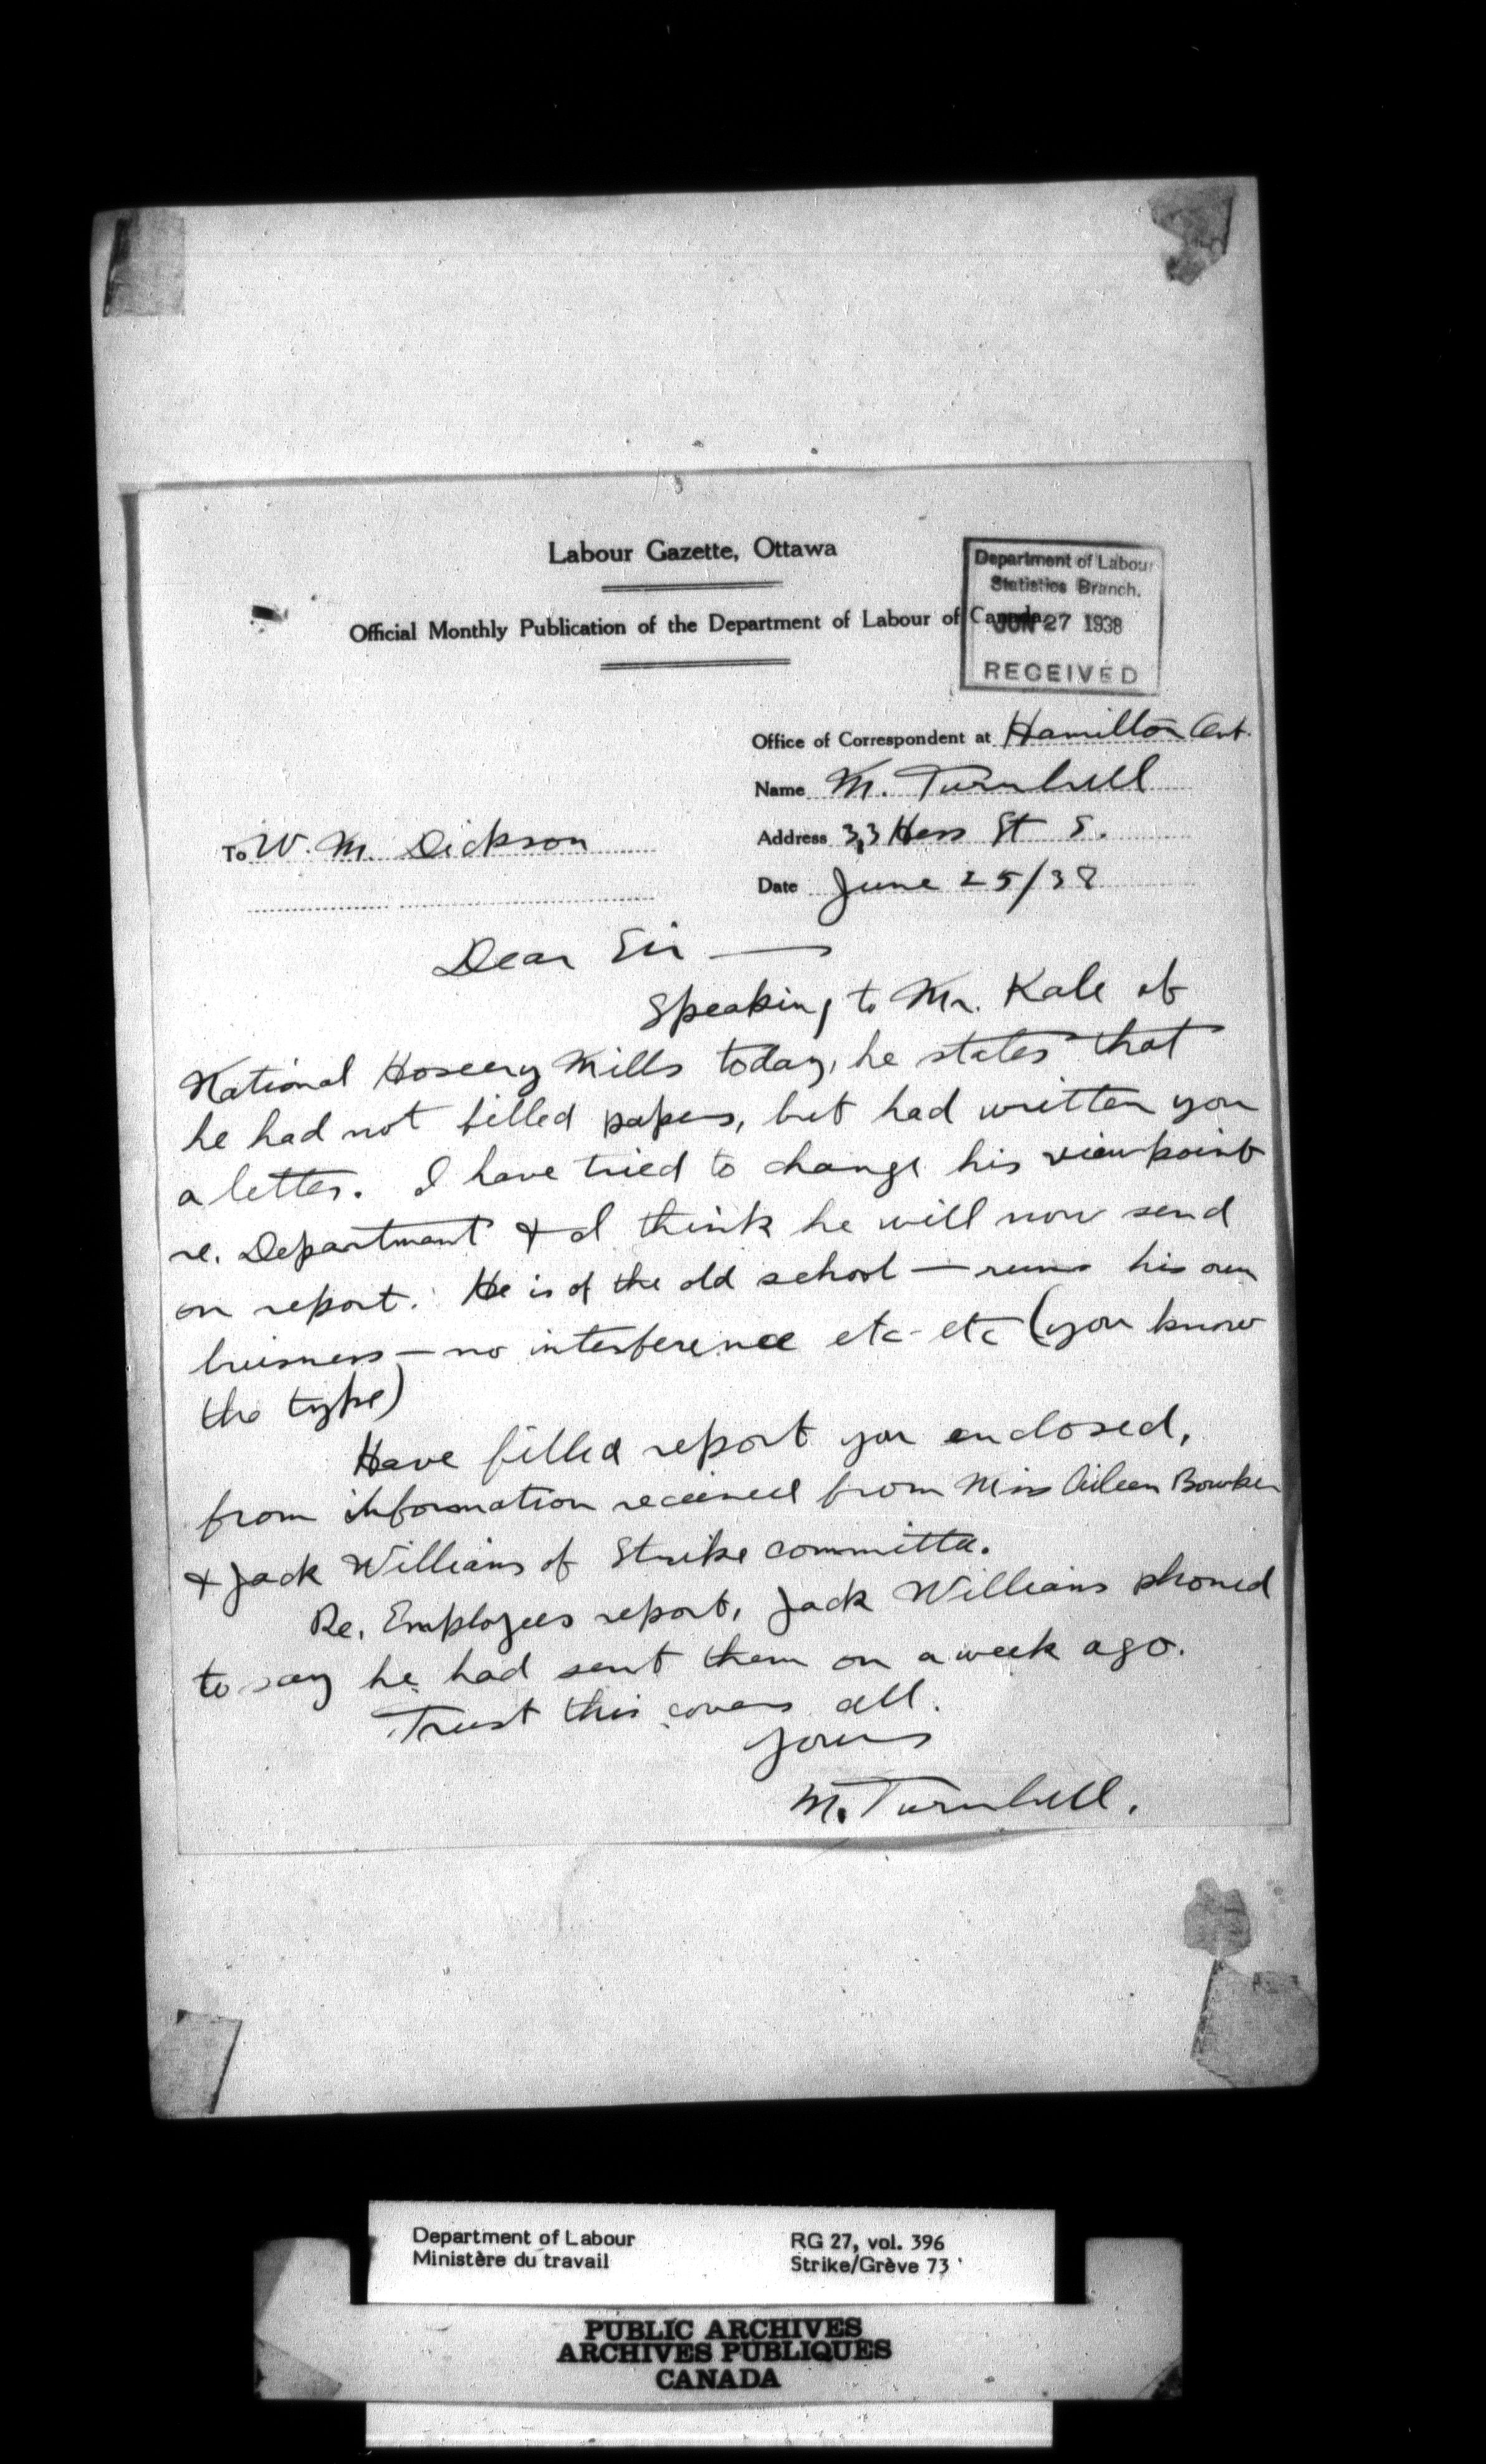 Labour Gazette, Ottawa
Official Monthly Publication of the Department of Labour of Canada
Department of Labour
Statistics Branch.
JUN 27 1938
RECEIVED
Office of Correspondent at Hamilton Ont.
Name M. Turnbull
Address 33 Hess St S.
Date June 25/38
To W. M. Dickson
Dear Sir —
Speaking to Mr. Kale of
National Hosiery Mills today, he states that
he had not filled papers, but had written you
a letter. I have tried to change his viewpoint
re. Department & I think he will now send
on report. He is of the old school — runs his own
business — no interference etc - etc (you know
the type)
Have filled report you enclosed,
from information received from Miss Aileen Bowker
& Jack Williams of Strike committee.
Re. Employees report, Jack Williams phoned
to say he had sent them on a week ago.
Trust this covers all.
Yours
M. Turnbull.
Department of Labour
Ministère du travail
RG 27, vol. 396
Strike/Grève 73
PUBLIC ARCHIVES
ARCHIVES PUBLIQUES
CANADA